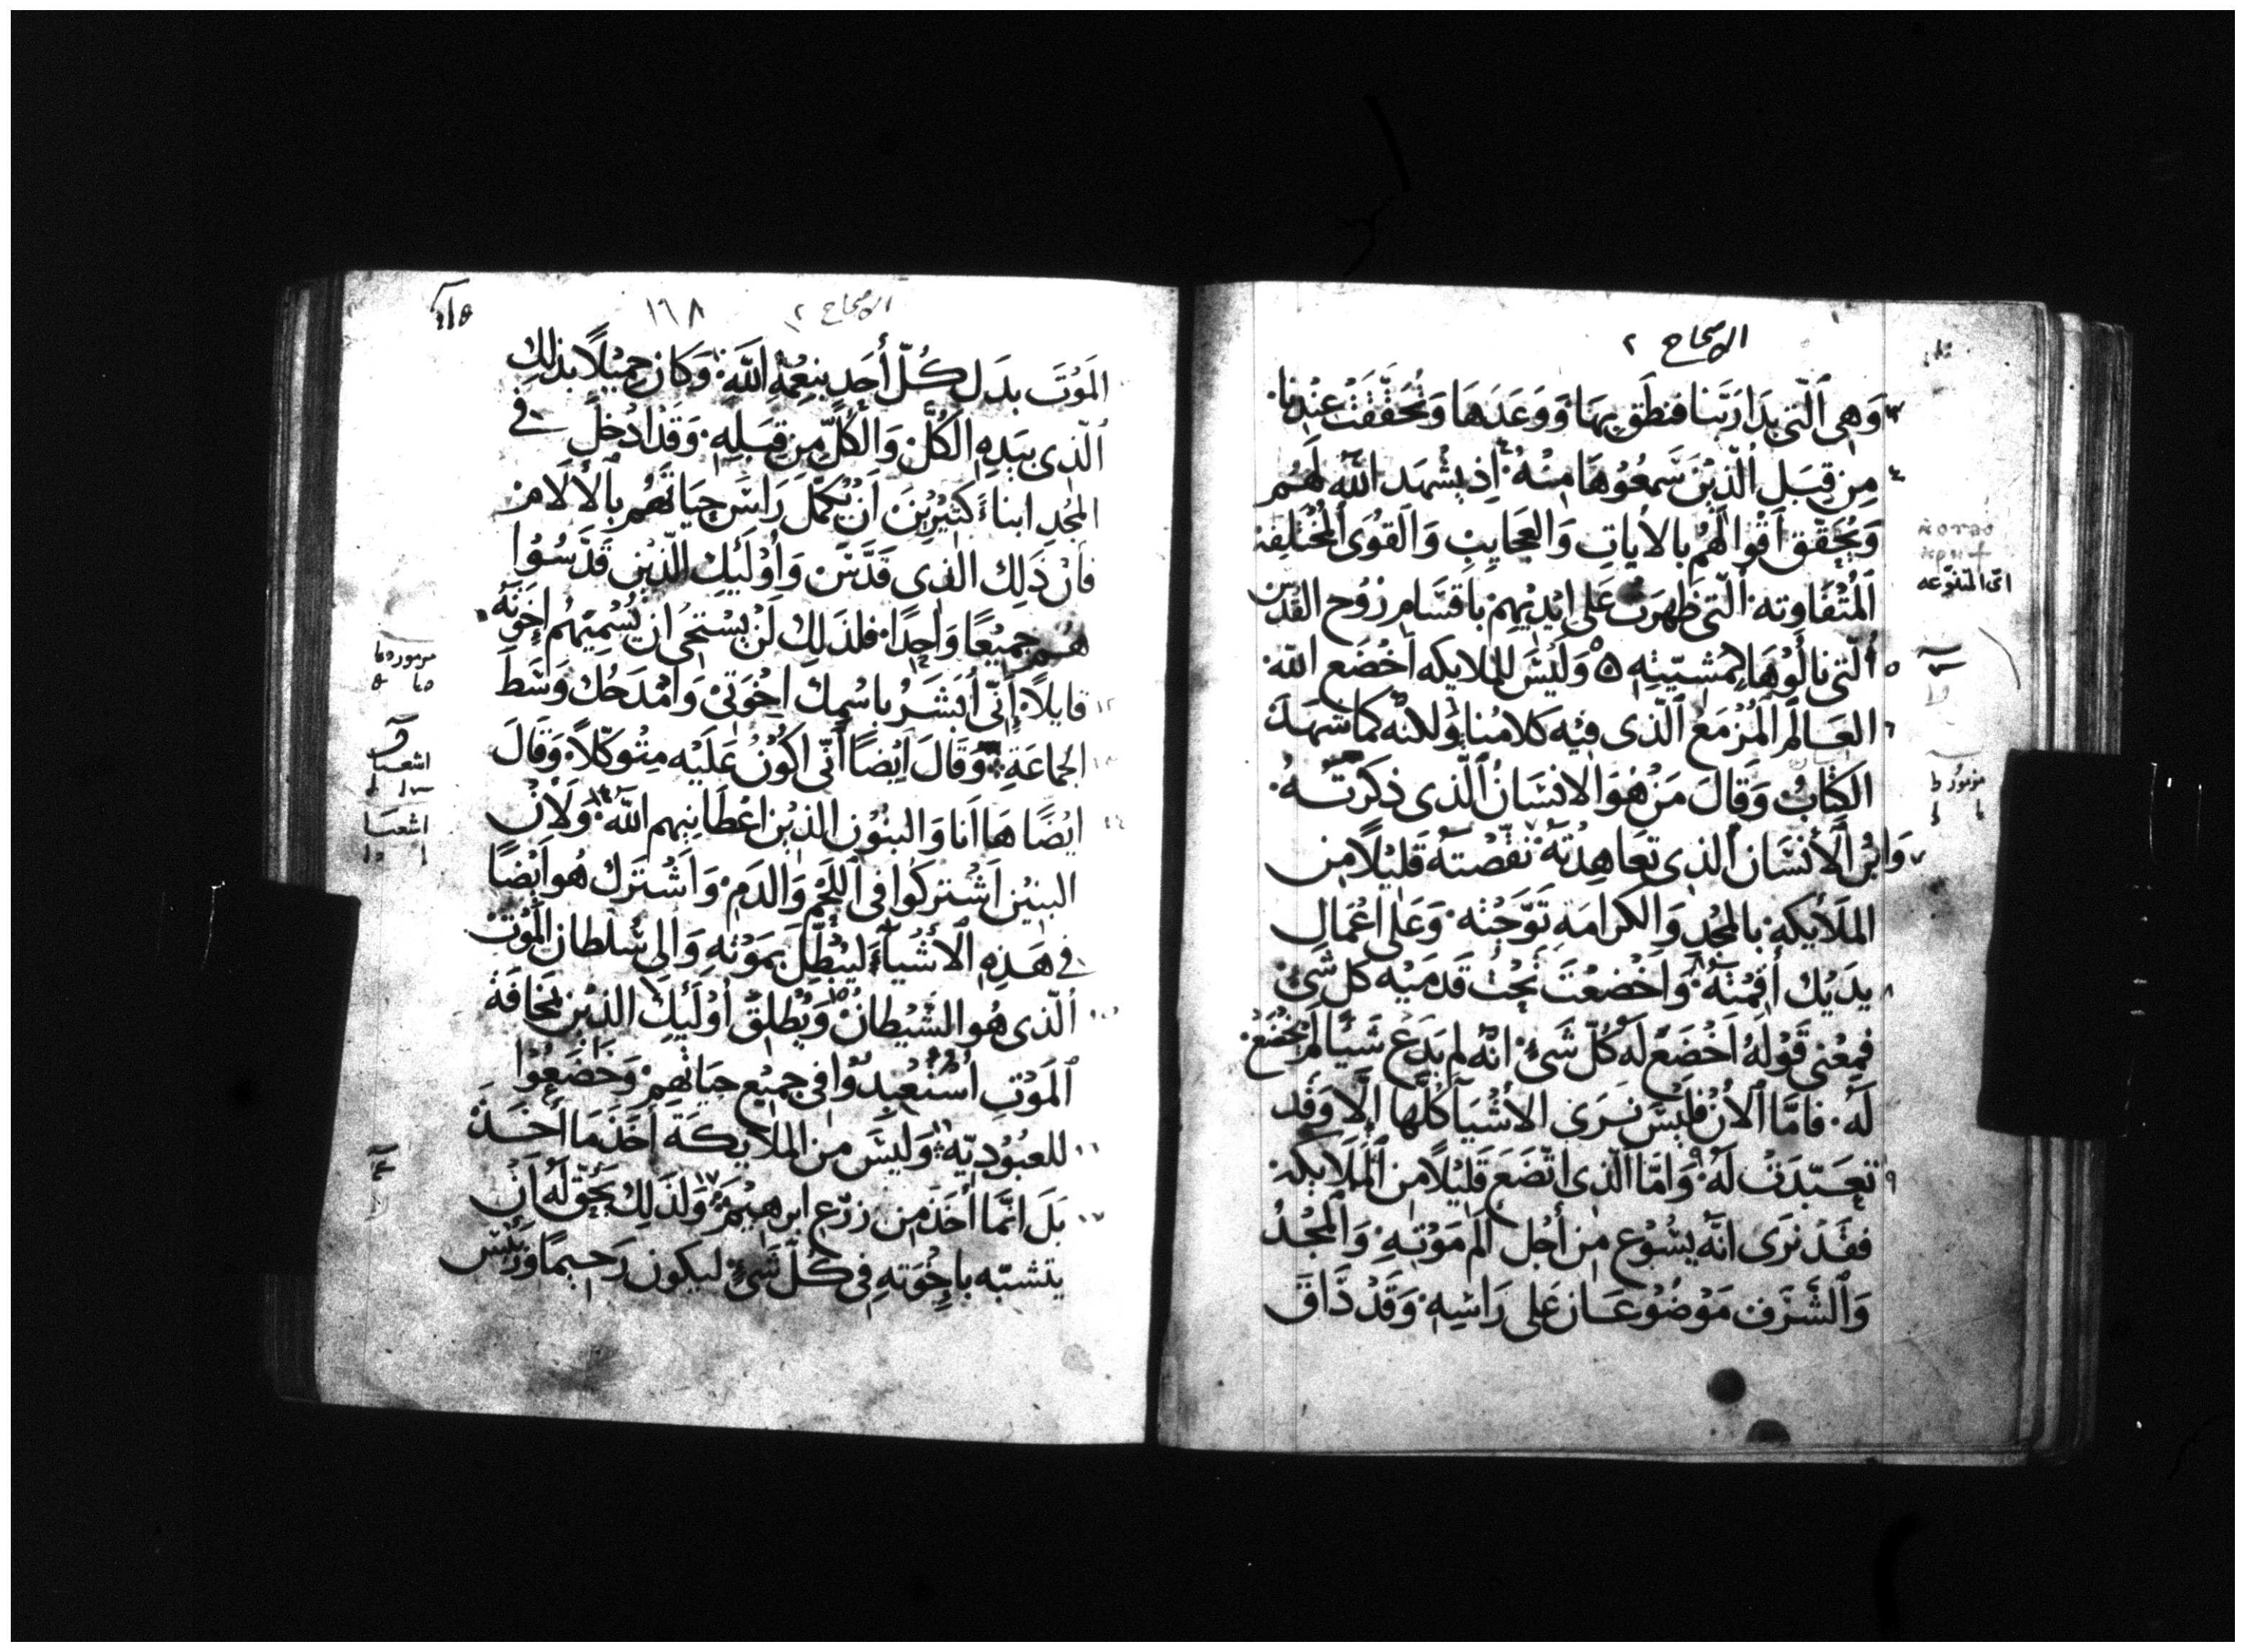 الاصحاح ٢
٣ وَهِى ٱلَّتى بَدَا رَبَّنا فنطَق بِهَا وَوَعَدَهَا وَتحَقّقَتْ عِنْدِنا.
٤ مِن قِبَلِ ٱلَّذِيْنَ سَّمعُوْهَا مِنْهُ. ٤ اِذ يشْهَد ٱللّه لَهُم
وَيُحَقّق اقْوالهُم بالاٰيٰاتِ وَالعجَايبِ وَٱلقُوَى ٱلمُخْتَلِفة
ٱلمُتْفَاوته. ٱلَّتى ظَهَرَت عَلى ايْديْهِمْ باقسَام رُوْح القدْس
٥ ٱلَّتى نالُوْهَا بمشيّتِهِ ٥ وَلَيْسَ للملايكه اَخْضَع اللّه
٦ العَالم المُزْمَع ٱلّذى فيْه كلامُنا ٦ وَلانّه كمَا شهَدَ
الكتَابُ وَقَالَ مَنْ هُوَ الانسَانُ ٱلَّذى ذكرْتهُ.
٧ وَابْنُ ٱلأنْسَان ٱلذى تعَاهدْتهُ. ٧ نقّصْتهُ قَليْلاً مِن
المَلَايكهِ. بالمجْدِ وَالكرَامَهِ تَوَّجْته. وَعَلى اعْمَالِ
٨ يدَيْك أقمْتهُ. ٨ وَاخْضعْتَ تحْت قدمَيْه كل شَى
فمعْنى قَوْله اَخْضَعَ لَه كُلّ شَىْ. انّه لم يدَعْ شيْئًا لَمْ يخْضَعْ
لَه. فامّا ٱلاٰنْ فليْسَ نرَى الأشْيآ كُلّها اَلَّا وَقد
٩ تعَبّدَتْ لَهُ. ٩ وَامّا ٱلّذى اتّضَعَ قليْلاً من المَلَايكه
فقَدْ نرَى انّه يسُوْع مِن أجْل ألَم مَوْته. وَالمجْدُ
وَٱلشَرَف مَوْضُوْعَان عَلى رَاسِهِ. وَقدْ ذَاقَ
اى المتنوّعه
مزمور
الاصحاح ٢
١٦٨
المَوْتَ بدَل كُلّ أحَدٍ بنِعمَةِ اَللّهِ. وَكانَ جميْلاً بذلِكَ
ٱلّذى بيَدِهِ الكُلّ وَالكُلّ مِن قِبَلِهِ. وَقَدْ ادْخلَ فى
المَجْدِ ابناءً كثيْرِيْنَ اَنْ يُكمّلَ رَاسَ حيَاتهُم بالاٰلَام
فانْ ذَلِك الذى قدَّسَ وَأوْليك الّذيْن قَدّسُوْا
هُم جميْعًا وَاحِدًا. فلذَلِك لَنْ يسْتحى ان يُسْميّهُم إخوَته
١٢ قايلاً. إنّى أبشرُ باسْمِك اِخْوَتىْ وَامْدَحُك وَسَطَ
١٣ الجماعَةِ. وَقَالَ ايْضًا أنّى اكوْنُ عَلَيْه متْوكّلاً. وَقَالَ
١٤ ايْضًا هَا اَنا وَالبنُوْن الذيْن اعْطانيهم اللّه. ١٤ وَلأنْ
البنيْن اَشْتركوا فى اللحْم وَالدَم. وَاَشْترَك هُو ايْضًا
فى هَذِهِ الاَشْيآءَ ليُبْطلَ بمَوْته وَالى سُلْطان الموْت
١٥ ٱلّذى هُو الشَّيْطان. ١٥ وَيُطلقَ أوْليك الذيْن بمخَافَة
ٱلمَوْتِ اسْتُعْبدُوْا فى جميْع حيَاتهم. وَخضَعُوْا
١٦ للعبُوْديّه. ١٦ وَليْسَ من الملَايكَة أخَذَ مَا أخَذَ
١٧ بَلَ انّما أخَذ مِن زرْع ابرهيْم. ١٧ وَلذَلِكَ يَحقّ لَه اَنْ
يتشبّه باخْوَتهِ فى كُلّ شَىْ. ليكون رَحيمًا وَرئيْس
مزمور
اشعيا
اشعيا